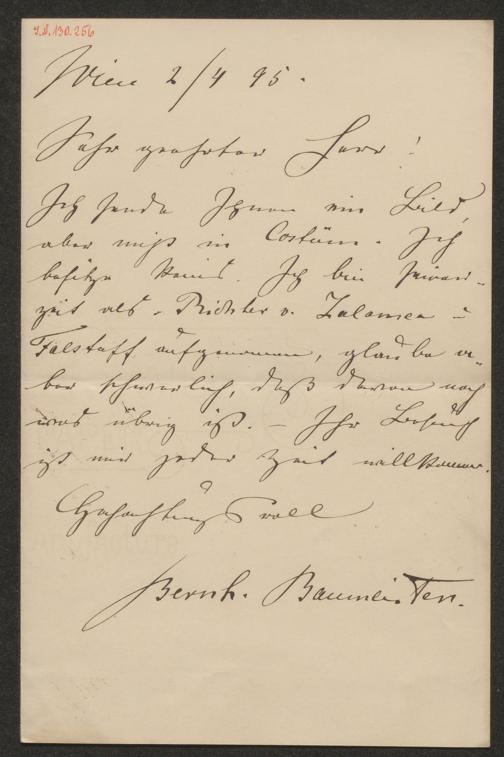 I.N. 130.256
Wien 2/4 95.
Sehr geehrter Herr!
Ich sende Ihnen ein Bild,
aber nicht in Costüm. Ich
besitze keins. Ich bin seiner-
zeit als Richter v. Zalamea u
Falstaff aufgenommen, glaube a-
ber schwerlich, daß davon noch
was übrig ist. – Ihr Besuch
ist mir jeder Zeit willkommen.
Hochachtungsvoll
Bernh. Baumeister.